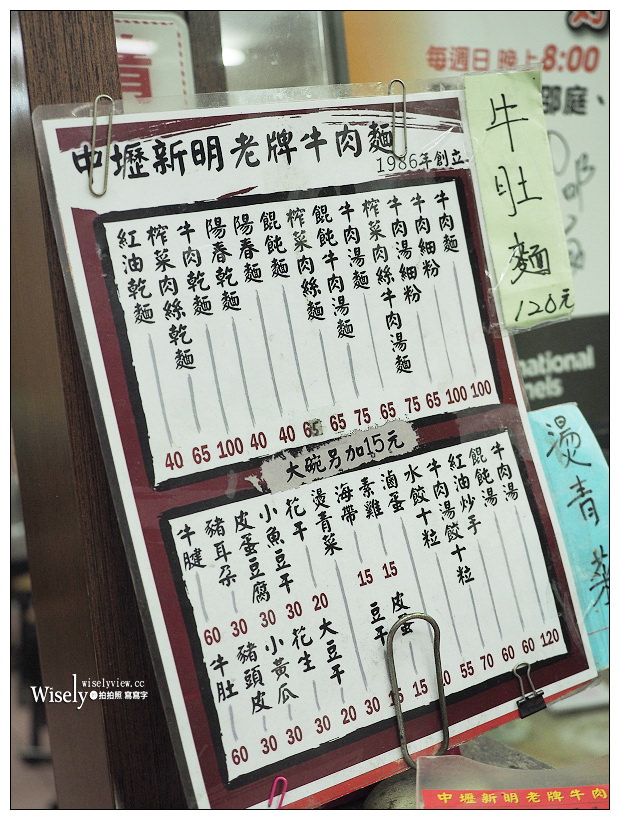 每週日 晚上8:00
邵庭、
中壢新明老牌牛肉麵
1986年創立
牛肉麵 100
牛肉細粉 100
牛肉湯細粉 65
榨菜肉絲牛肉湯麵 75
牛肉湯麵 65
餛飩牛肉湯麵 75
榨菜肉絲麵 65
餛飩麵 65
陽春麵 40
陽春乾麵 40
牛肉乾麵 100
榨菜肉絲乾麵 65
紅油乾麵 40
大碗另加15元
牛肉湯
餛飩湯
紅油炒手
牛肉湯餃十粒
水餃十粒
滷蛋 15
素雞 15
海帶
燙青菜
花干 20
小魚豆干 30
皮蛋豆腐 30
豬耳朵 30
牛腱 60
皮蛋
豆干
大豆干
花生
小黃瓜
豬頭皮
牛肚
60 30 30 30 20 30 15 15 40 55 70 60 60 120
牛肚麵
120元
national
nels
燙青菜
wiselyview.cc
Wisely 拍拍照 寫寫字
中壢新明老牌牛肉